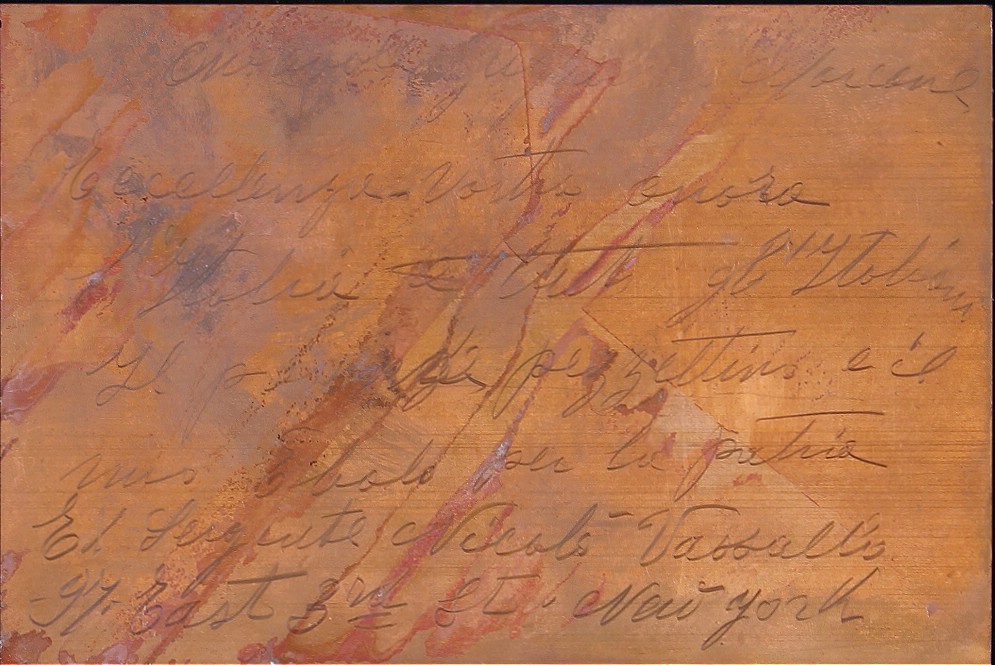 Eccellenza Vostra onora
Italia e tutt gl'Italiani
Il grande pezzettino e il
mio Obolo per la patria
El Sergente Nicolò Vassallo
97 East 3rd St. New York